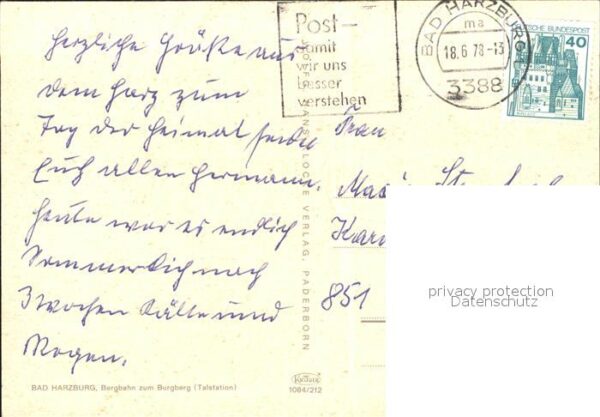 Herzliche Grüße aus
dem Harz zum
Tag der Heimat sendet
Euch allen Hermann.
Heute war es endlich
Sommerlich nach
3 Wochen Kälte und
Regen.
BAD HARZBURG, Bergbahn zum Burgberg (Talstation)
Post-
damit
wir uns
besser
verstehen
VERLAG, PADERBORN
1084/212
BAD HARZBURG 1
ma
18.6.78-13
3388
DEUTSCHE BUNDESPOST
40
Frau
851
privacy protection
Datenschutz